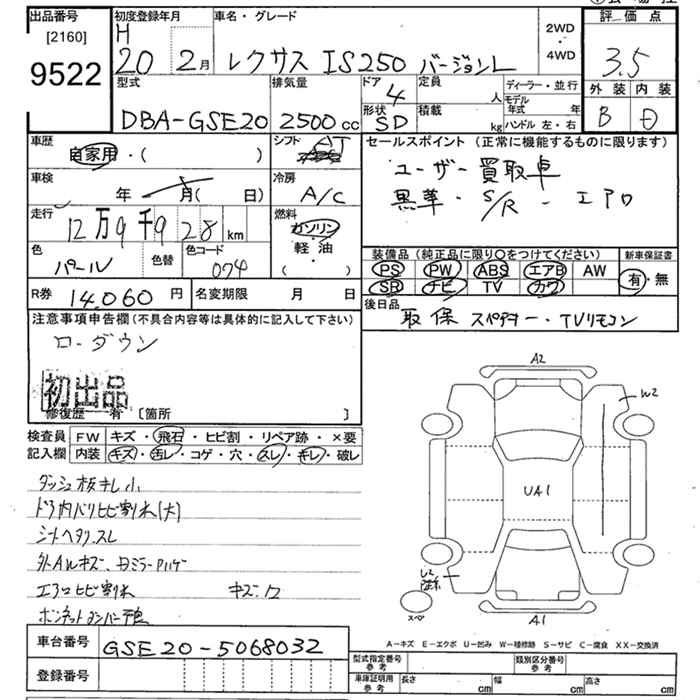 出品番号
[2160]
9522
初度登録年月
H
20 2月
車名・グレード
レクサス IS250 バージョンL
2WD
・
4WD
評価点
3.5
外装 内装
B D
型式
DBA-GSE20
排気量
2500cc
ドア
4
形状
SD
定員
人
積載
kg
ディーラー・並行
モデル年式 年
ハンドル 左・右
車歴
自家用・( )
シフト
AT
車検
年 月( 日)
冷房
A/C
走行
12万9千928km
燃料
ガソリン
軽・油
( )
色
パール
色替
色コード
074
R券 14,060円
名変期限 月 日
セールスポイント(正常に機能するものに限ります)
ユーザー買取車
黒革・S/R・エアロ
装備品(純正品に限り○をつけてください)
PS PW ABS エアB AW
SR ナビ TV カワ
新車保証書
有・無
後日品
取保 スペアキー・TVリモコン
注意事項申告欄(不具合内容等は具体的に記入して下さい)
ローダウン
初出品
修復歴 有 〔箇所 〕
検査員
記入欄
FW キズ・飛石・ヒビ割・リペア跡・×要
内装 キズ・汚レ・コゲ・穴・スレ・キレ・破レ
ダッシュ板キレ小
ドア内バリヒビ割れ(大)
シートヘタリ、スレ
外AWキズ、
エアロヒビ割れ
キズ・
A2
W2
UA1
U2
スペア
A1
A-キズ E-エクボ U-凹み W-補修跡 S-サビ C-腐食 XX-交換済
車台番号
GSE20-5068032
登録番号
型式指定番号
参考
類別区分番号
参考
車庫証明用
参考
長さ cm
幅 cm
高さ cm